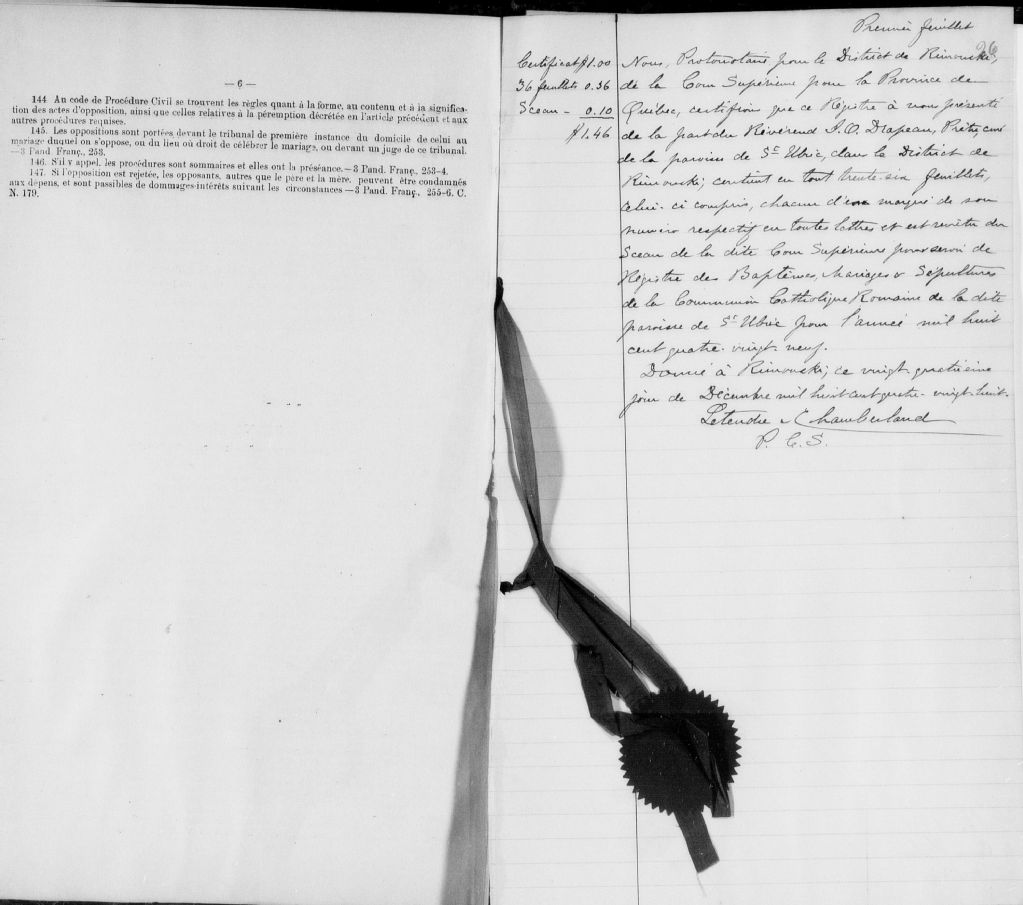 — 6 —
144 Au code de Procédure Civil se trouvent les règles quant à la forme, au contenu et à la significa-
tion des actes d'opposition, ainsi que celles relatives à la péremption décrétée en l'article précédent et aux
autres procédures requises.
145. Les oppositions sont portées devant le tribunal de première instance du domicile de celui au
mariage duquel on s'oppose, ou du lieu où droit de célébrer le mariage, ou devant un juge de ce tribunal.
—3 Pand. Franç., 253.
146. S'il y appel, les procédures sont sommaires et elles ont la préséance.—3 Pand. Franç., 253-4.
147. Si l'opposition est rejetée, les opposants, autres que le père et la mère, peuvent être condamnés
aux dépens, et sont passibles de dommages-intérêts suivant les circonstances—3 Pand. Franç., 255-6. C.
N. 179.
Premier feuillet
26
Certificat $1.00
36 feuillets 0.36
Sceau - 0.10
$1.46
Nous, Protonotaire pour le District de Rimouski,
de la Cour Supérieure pour la Province de
Québec, certifions que ce Régistre à nous présenté
de la part du Révérend J. O. Drapeau, Prêtre, curé
de la paroisse de St Ulric, dans le District de
Rimouski; contient en tout trente-six feuillets,
celui-ci compris, chacun d'eux marqué de son
numéro respectif en toutes lettres et est revêtu du
Sceau de la dite Cour Supérieure pour servir de
Régistre des Baptêmes, Mariages & Sépultures
de la Communion Catholique Romaine de la dite
paroisse de St Ulric pour l'année mil huit
cent quatre-vingt-neuf.
Donné à Rimouski, ce vingt-quatrième
jour de Décembre mil huit cent quatre-vingt-huit.
Letendre & Chamberland
P. C. S.